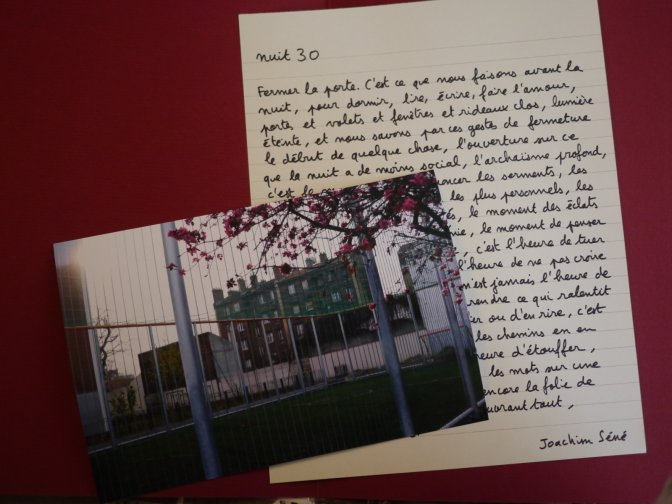 nuit 30
Fermer la porte. C'est ce que nous faisons avant la
nuit, pour dormir, lire, écrire, faire l'amour,
portes et volets et fenêtres et rideaux clos, lumière
éteinte, et nous savons par ces gestes de fermeture
le début de quelque chose, l'ouverture sur ce
que la nuit a de moins social, l'archaïsme profond,
c'est le les serments, les
les plus personnels, les
le moment des éclats
le moment de penser
c'est l'heure de tuer
l'heure de ne pas croire
n'est jamais l'heure de
ce qui ralentit
ou d'en rire, c'est
les chemins en en
d'étouffer,
les mots sur une
encore la folie de
tout,
Joachim Séné